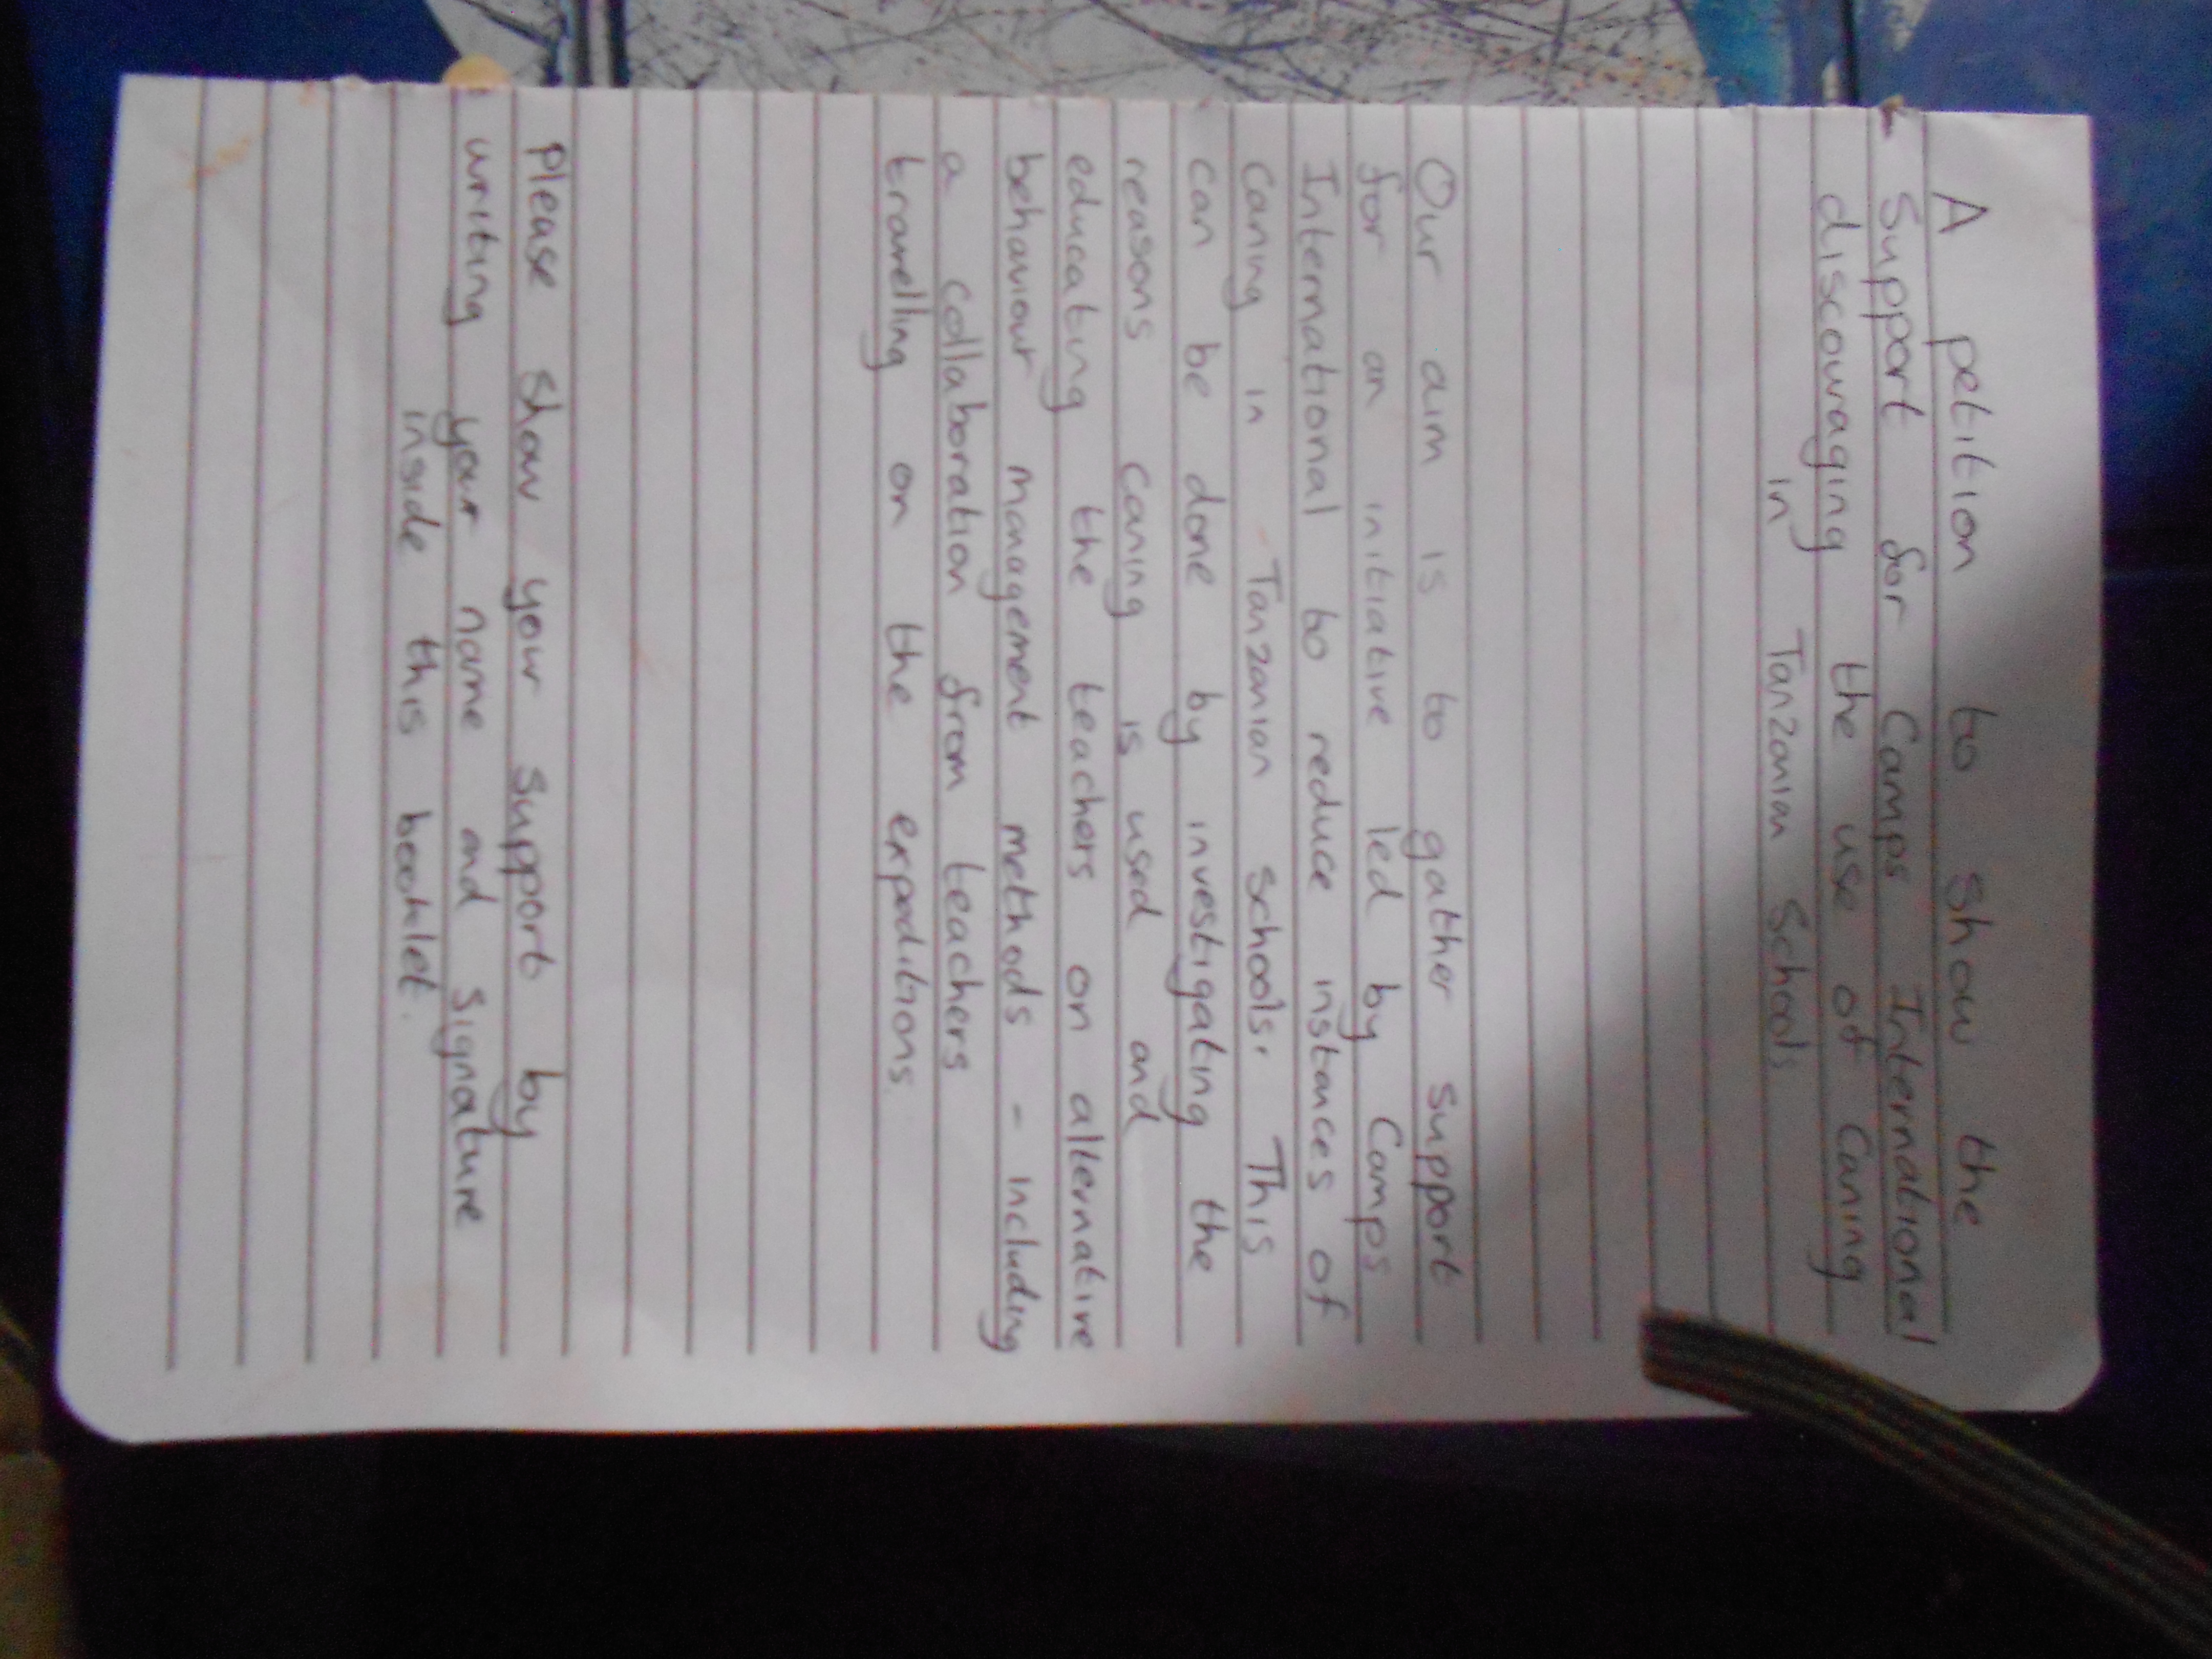 A petition to show the
Support for Camps International
discouraging the use of Caning
in Tanzanian Schools
Our aim is to gather support
for an initiative led by Camps
International to reduce instances of
caning in Tanzanian Schools. This
can be done by investigating the
reasons caning is used and
educating the teachers on alternative
behaviour management methods - including
a collaboration from teachers
travelling on the expeditions.
Please show your support by
writing your name and signature
inside this booklet.